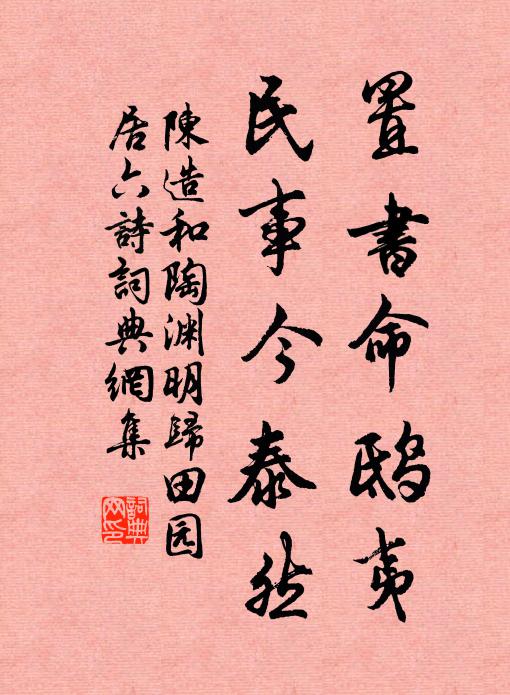 置書命鴟夷
民事今泰然
陳造和陶渊明歸田园
居六詩詞典網集
詞典网印